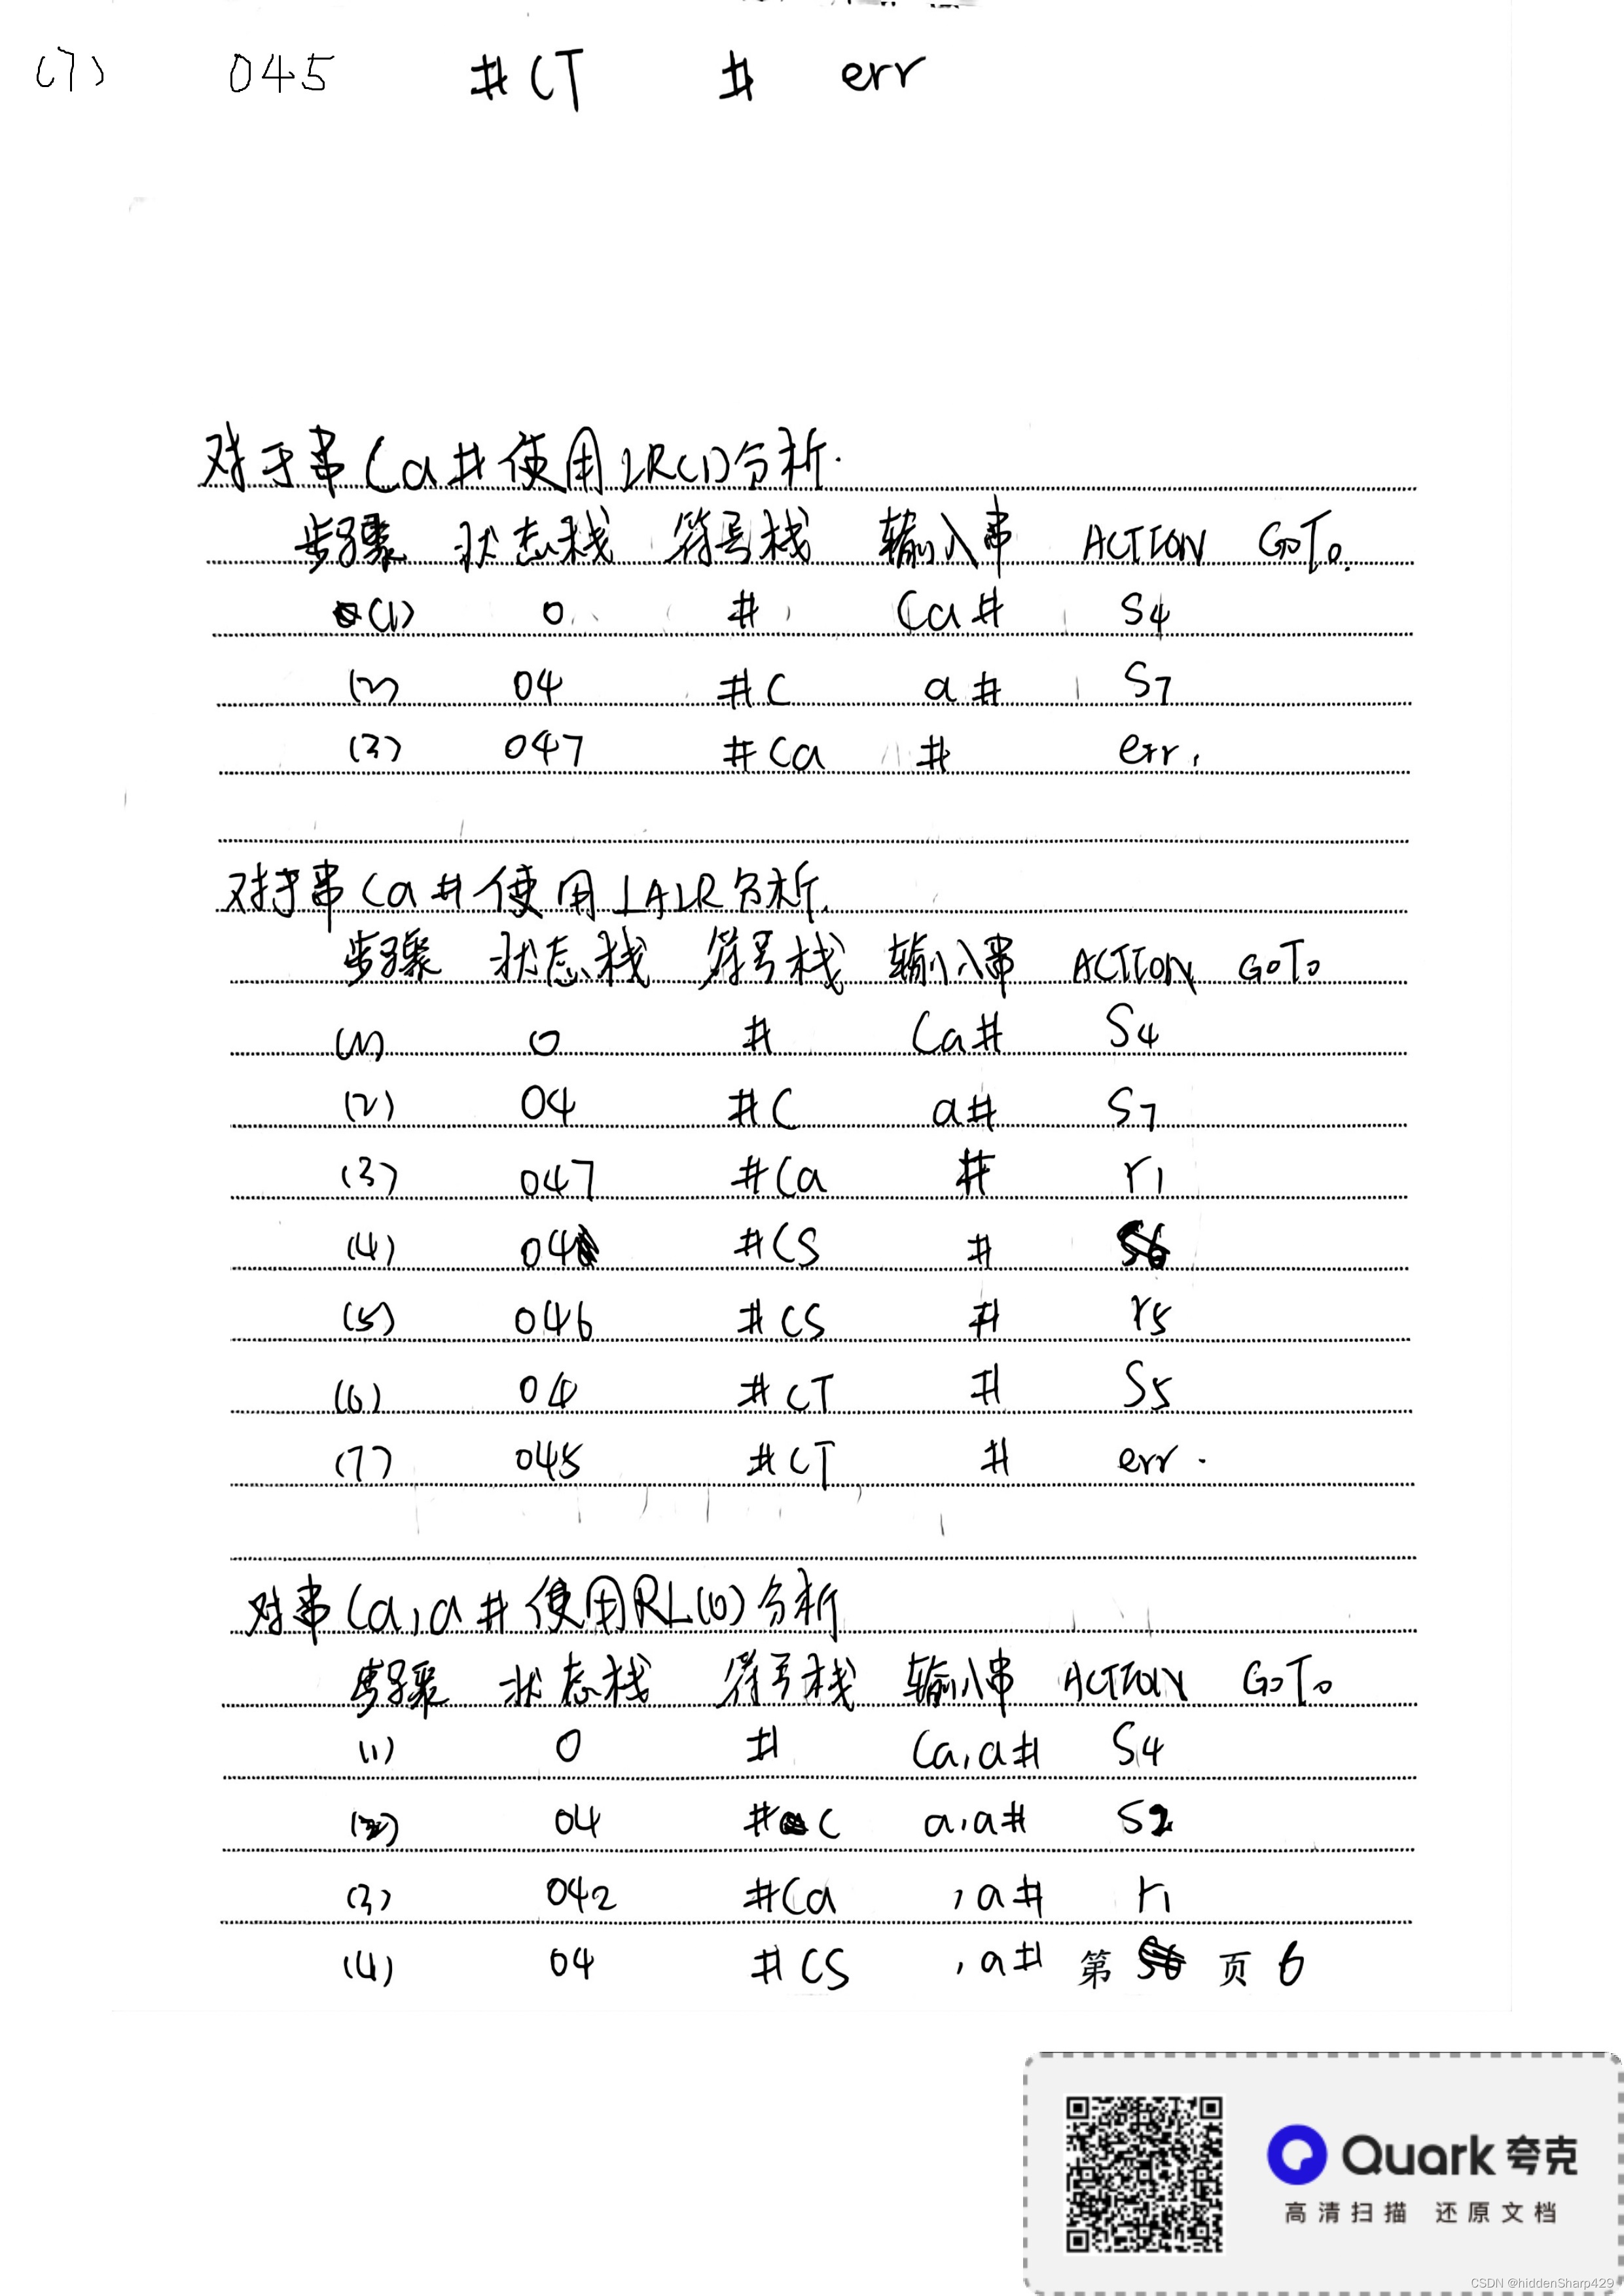 (7) 045 #CT # err
对于串(a#使用LR(1)分析.
步骤 状态栈 符号栈 输入串 ACTION GOTO.
(1) 0 # (a# S4
(2) 04 #( a# S7
(3) 047 #(a # err.
对于串(a#使用LALR分析.
步骤 状态栈 符号栈 输入串 ACTION GOTO
(1) 0 # (a# S4
(2) 04 #( a# S7
(3) 047 #(a # r1
(4) 04 #(S #
(5) 046 #(S # r5
(6) 04 #(T # S5
(7) 045 #(T # err.
对串(a,a#使用RL(0)分析
步骤 状态栈 符号栈 输入串 ACTION GOTO
(1) 0 # (a,a# S4
(2) 04 #( a,a# S2
(3) 042 #(a ,a# r1
(4) 04 #(S ,a# 第 页 6
Quark 夸克
高清扫描 还原文档
CSDN @hiddenSharp429